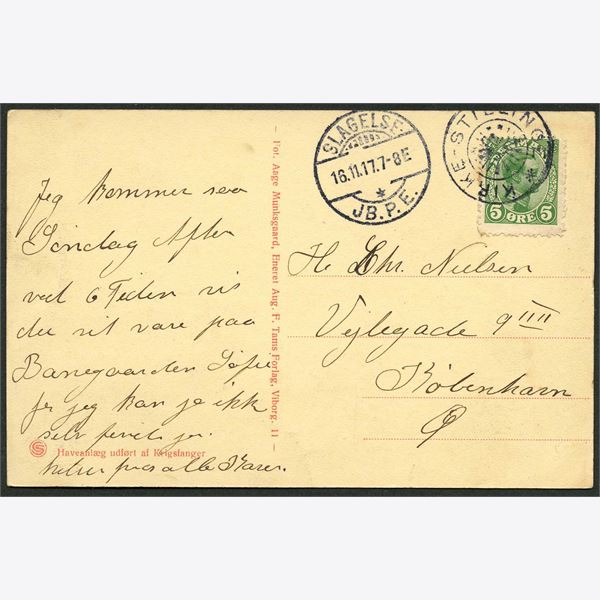 SLAGELSE
16.11.17.7-8E
JB.P.E.
KIRKE-STILLINGE
5 ØRE 5
Jeg kommer saa
Søndag Aften
ved 6 Tiden vis
du vil vare paa
Banegaarden
for jeg kan jo ikk
selv
hilsen fra alle Karen.
Fot. Aage Munksgaard, Eneret Aug. F. Tams Forlag, Viborg. 11
Haveanlæg udført af Krigsfanger
H. Chr. Nielsen
Vejlegade 9 IIII
København
Ø